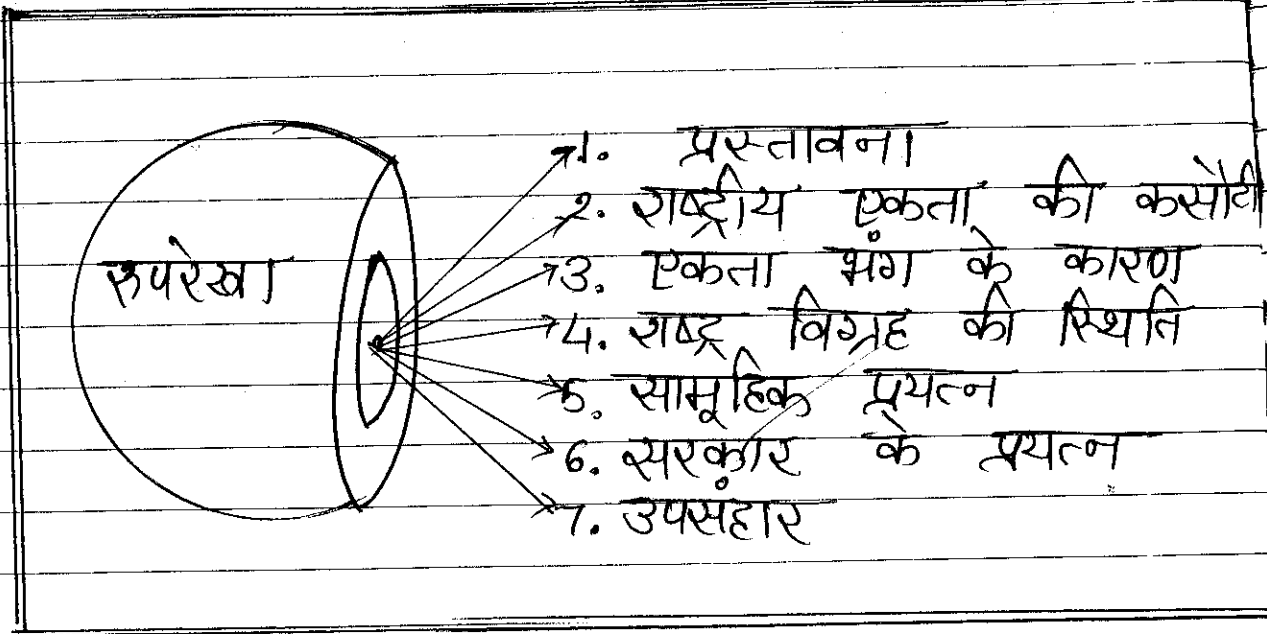 रुपरेखा
1. प्रस्तावना
2. राष्ट्रीय एकता की कसौटी
3. एकता भंग के कारण
4. राष्ट्र विग्रह की स्थिति
5. सामूहिक प्रयत्न
6. सरकार के प्रयत्न
7. उपसंहार